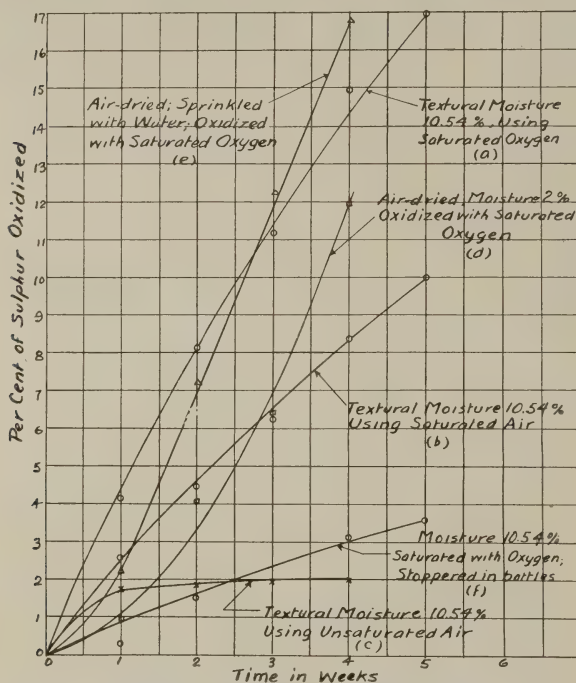 17
16
15
14
13
12
11
10
9
8
7
6
5
4
3
2
1
0
Per Cent. of Sulphur Oxidized
Air-dried; Sprinkled
with Water; Oxidized
with Saturated Oxygen
(e)
Textural Moisture
10.54%. Using
Saturated Oxygen
(a)
Air-dried, Moisture 2%
Oxidized with Saturated
Oxygen
(d)
Textural Moisture 10.54%
Using Saturated Air
(b)
Moisture 10.54%
Saturated with Oxygen;
Stoppered in bottles
(f)
Textural Moisture 10.54%
Using Unsaturated Air
(c)
0 1 2 3 4 5 6 7
Time in Weeks